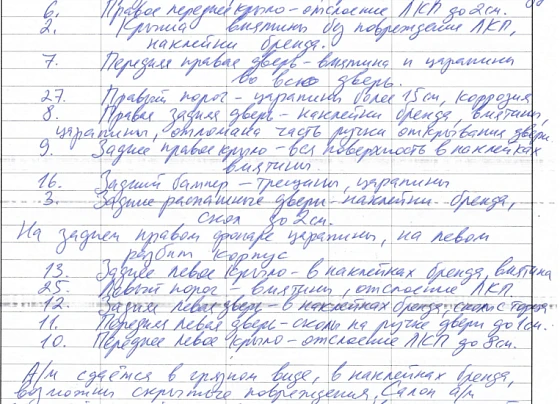 6. Правое переднее крыло - отслоение ЛКП до 2см.
2. Крыша вмятины без повреждение ЛКП,
наклейки бренда.
7. Передняя правая дверь - вмятина и царапина
во всю дверь.
27. Правый порог - царапины более 15см, коррозия
8. Правая задняя дверь - наклейки бренда, вмятины,
царапины, отломана часть ручки открывания двери.
9. Заднее правое крыло - вся поверхность в наклейках
вмятины.
16. Задний бампер - трещины, царапины
3. Задние распашные двери - наклейки бренда,
скол до 2см.
На заднем правом фонаре царапины, на левом
разбит корпус
13. Заднее левое крыло - в наклейках бренда, вмятина
25. Левый порог - вмятины, отслоение ЛКП.
12. Задняя левая дверь - в наклейках бренда, сколы с торца.
11. Передняя левая дверь - сколы на ручке двери до 1см.
10. Переднее левое крыло - отслоение ЛКП до 8см.
А/м сдаётся в грязном виде, в наклейках бренда,
возможны скрытые повреждения, Салон а/м